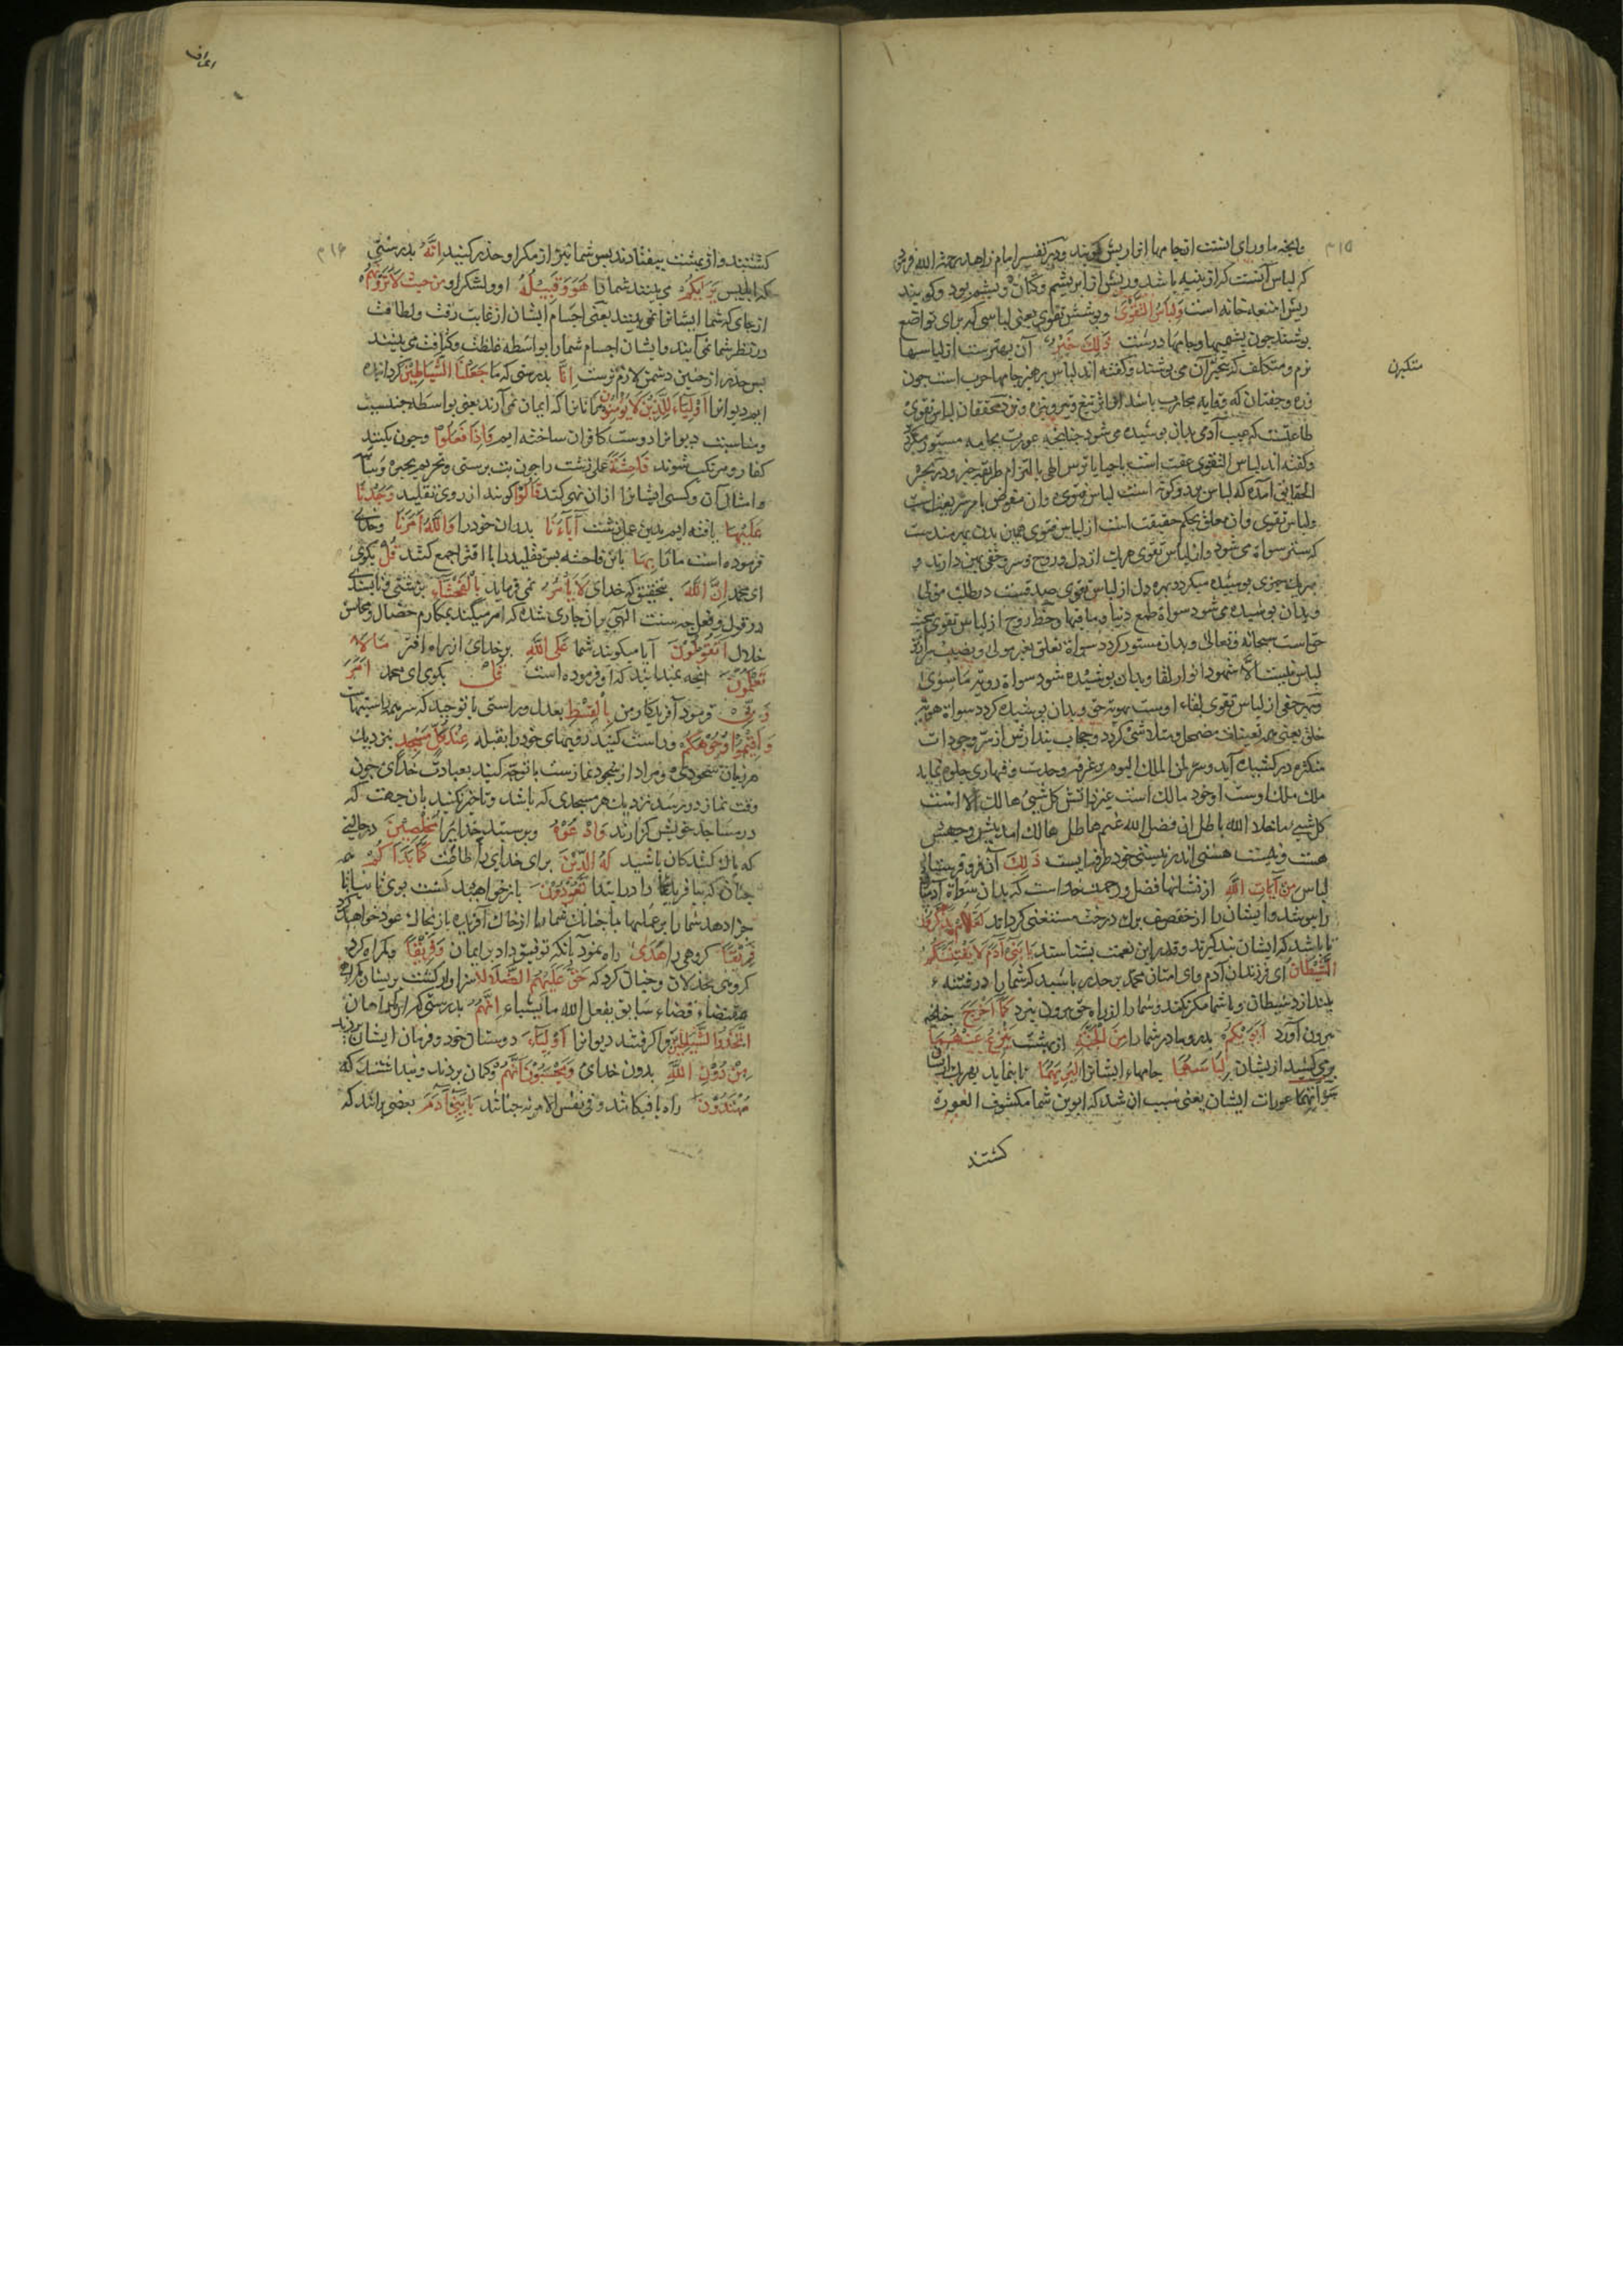 وآنچه ماورای اینست از جامها انرا ریش گویند ودر تفسیر امام زاهد رحمه الله فرمود
که لباس آنست که از پنبه باشد وریش از ابریشم وکتان وپشم بود وگویند
ریش امتعه خانه است وَلِبَاسُ التَّقْوَىٰ وپوشش تقوی یعنی لباسی که برای تواضع
پوشند چون پشمینها وجامهای درشت ذَلِكَ خَيْرٌ آن بهترست از لباسها
متکبران
نرم ومتکلف که متجبران می پوشند وگفته اند لباس پرهیز جامها حرب است چون
زره وخفتان که وقایه محارب باشد از اثر تیغ وتیر ونیزه ونزد محققان لباس تقوی
طاعتست که عیب آدمی بدان پوشیده می شود چنانچه عورت بجامه مستور گردد
وگفته اند لباس التقوی عفت است یا حیا یا ترس الهی یا التزام طریقه
الحقایق آمده که لباس بر دو گونه است لباس فتوی وان مفوض بامر شریعتست
ولباس تقوی وآن متعلق بحکم حقیقت است از لباس فتوی همین بدن بهرمندست
که ستر سواة می شود واز لباس تقوی هر یک از دل وروح وسر وخفی بهره دارند و
هر یک بچیزی پوشیده میگردد بهره دل از لباس تقوی صدقست در طلب مولی
وبدان پوشیده می شود سواة طمع دنیا وما فیها وحظ روح از لباس تقوی محبت
حق است سبحانه وتعالی وبدان مستور گردد سواة تعلق بغیر مولی ونصیب سر از
لباس شهود انوار لقا وبدان پوشیده شود سواة رویت ما سوی
وبهره خفی از لباس تقوی بقاء اوست بهویت حق وبدان پوشیده گردد سواة هویت
خلق یعنی همه تعینات مضمحل ومتلاشی گردد وحجاب پندارش از سر وجودات
متکثره در کشیده آید وسر لمن الملک الیوم بر غرفه وحدت وقهاری جلوه نماید
ملک ملک اوست او خود مالک است غیر ذاتش کل شیئ هالک الا است
کل شیئ ما خلا الله باطل ان فضل الله غیم هاطل هالک آمد پیش وجهش
هست ونیست هستی اندر نیستی خود طرفه ایست ذَلِكَ آن فرو فرستادن
لباس مِنْ آيَاتِ اللَّهِ از نشانهای فضل ورحمت خداست که بدان سواة آدمیان
را بپوشد وایشان را از خصف برگ درخت مستغنی گرداند لَعَلَّهُمْ يَذَّكَّرُونَ
تا باشد که ایشان پند گیرند وقدر این نعمت بشناسند يَا بَنِي آدَمَ لَا يَفْتِنَنَّكُمُ
الشَّيْطَانُ ای فرزندان آدم وای امتان محمد بر حذر باشید که شما را در فتنه
نیندازد شیطان وبا شما مکر نکند وشما را از راه حق بیرون نبرد كَمَا أَخْرَجَ چنانچه
بیرون آورد أَبَوَيْكُمْ پدر ومادر شما را مِنَ الْجَنَّةِ از بهشت يَنْزِعُ عَنْهُمَا
بیرون کشید ازیشان لِبَاسَهُمَا جامهاء ایشانرا لِيُرِيَهُمَا تا بنماید بهر یک ازیشان
سَوْآتِهِمَا عورات ایشان یعنی سبب ان شد که ابوین شما مکشوف العورة
گشتند
اعراف
گشتند واز بهشت بیفتادند پس شما نیز از مکر او حذر کنید إِنَّهُ بدرستی
که ابلیس يَرَاكُمْ می بیند شما را هُوَ وَقَبِيلُهُ او ولشکر او مِنْ حَيْثُ لَا تَرَوْنَهُمْ
از جای که شما ایشانرا نمی بینید یعنی اجسام ایشان از غایت رقت ولطافت
در نظر شما نمی آیند وایشان اجسام شما را بواسطه غلظت وکثافت می بینند
پس حذر از چنین دشمن لازم ترست إِنَّا بدرستی که ما جَعَلْنَا الشَّيَاطِينَ گردانیده
ایم دیوانرا أَوْلِيَاءَ لِلَّذِينَ لَا يُؤْمِنُونَ مر آنانرا که ایمان نمی آرند یعنی بواسطه جنسیت
ومناسبت دیوانرا دوست کافران ساخته ایم وَإِذَا فَعَلُوا وچون بکنند
کفار ومرتکب شوند فَاحِشَةً عملی زشت را چون بت پرستی وتحریم بحیره وسائبه
وامثال آن وکسی ایشانرا ازان نهی کند قَالُوا گویند از روی تقلید وَجَدْنَا
عَلَيْهَا یافته ایم بدین عمل زشت آبَاءَنَا پدران خود را وَاللَّهُ أَمَرَنَا وخدای
فرموده است ما را بِهَا باین فاحشه پس تقلید را با افترا جمع کنند قُلْ بگوی
ای محمد إِنَّ اللَّهَ بتحقیق که خدای لَا يَأْمُرُ نمی فرماید بِالْفَحْشَاءِ بزشتی وناپسندی
در قول وفعل چه سنت الهی بران جاری شده که امر میکند بمکارم خصال ومحاسن
خلال أَتَقُولُونَ آیا میگویند شما عَلَى اللَّهِ بر خدای از راه افترا مَا لَا
تَعْلَمُونَ انچه نمیدانید که او فرموده است قُلْ بگوی ای محمد أَمَرَ
رَبِّي فرمود آفریدگار من بِالْقِسْطِ بعدل وراستی یا توحید که سر همه راستیهاست
وَأَقِيمُوا وُجُوهَكُمْ وراست کنید رویهای خود را بقبله عِنْدَ كُلِّ مَسْجِدٍ نزدیک
هر زمان سجودی ومراد از سجود نمازست یا توجه کنید بعبادت خدای چون
وقت نماز در رسد نزدیک هر مسجدی که باشد وتاخیر نکنید بان جهت که
در مساجد خویش گزارند وَادْعُوهُ وبپرستید خدایرا مُخْلِصِينَ در حالتی
که پاک کنندگان باشید لَهُ الدِّينَ برای خدای را طاعت كَمَا بَدَأَكُمْ
چنان که بیافرید شما را در ابتدا تَعُودُونَ باز خواهید گشت بوی تا شما را
جزا دهد شما را بر عملها یا چنانک شما را از خاک آفریده باز بخاک عود خواهید کرد
فَرِيقًا گروهی را هَدَىٰ راه نمود بآنکه توفیق داد بر ایمان وَفَرِيقًا وگمراه کرد
گروهی بخذلان وچنان کرد که حَقَّ عَلَيْهِمُ الضَّلَالَةُ سزاوار گشت بریشان گمراهی
بمقتضاء قضاء سابق یفعل الله ما یشاء إِنَّهُمُ بدرستی که این گمراهان
اتَّخَذُوا الشَّيَاطِينَ فرا گرفتند دیوانرا أَوْلِيَاءَ دوستان خود وفرمان ایشان بردند
مِنْ دُونِ اللَّهِ بدون خدای وَيَحْسَبُونَ أَنَّهُمْ وگمان بردند وپنداشتند که
مُهْتَدُونَ راه یافتگانند وفی نفس الامر نه چنانند يَا بَنِي آدَمَ بعضی برانند که